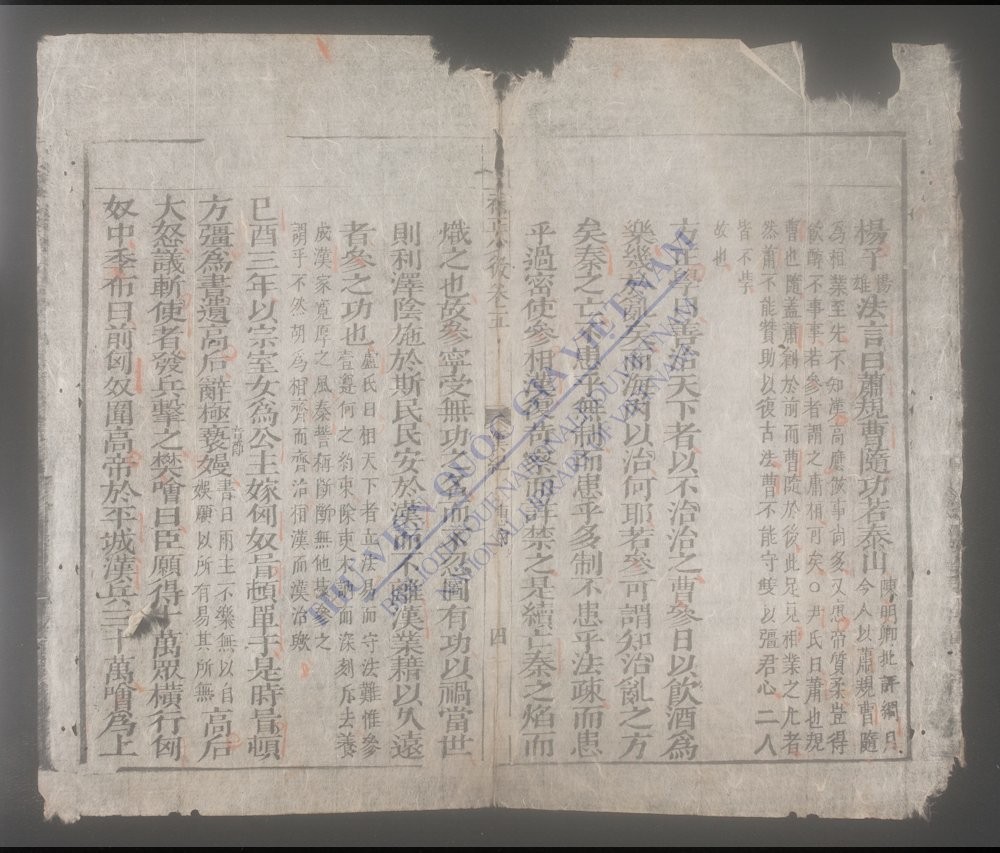 楊子雄楊法言曰蕭規曹隨功若泰山陳明卿批評綱目今人以蕭規曹隨
為相業至先不知漢高
飲醇不事事若參者謂之庸相可矣○尹氏曰蕭也規
曹也隨蓋蕭創於前而曹隨於後此足見相業之尤者
然蕭不能贊助以復古法曹不能守以彊君心二人
皆不学
故也
方正學曰善治天下者以不治治之曹參日以飲酒為
樂幾於亂矣而海內以治何耶若參可謂知治亂之方
矣秦之亡不患乎無制而患乎多制不患乎法疎而患
乎過密使參相漢復苛察而許禁之是續亡秦之焰而
熾之也故參寧受無功之名而不忍圖有功以禍當世
則利澤陰施於斯民民安於漢而不離漢業藉以久遠
者參之功也盧氏曰相天下者立法易而守法難惟參壹遵何之約束除吏木訥而深刻斥去養
成漢家寬厚之風秦誓稱斷斷無他其參之
謂乎不然胡為相齊而齊治相漢而漢治歟
巳酉三年以宗室女為公主嫁匈奴冒頓單于是時冒頓
方彊為書遺高后辭極褻嫚書曰兩主不樂無以自娛願以所有易其所無高后
大怒議斬使者發兵擊之樊噲曰臣願得十萬眾橫行匈
奴中季布曰前匈奴圍高帝於平城漢兵三十萬噲為上
四
THƯ VIỆN QUỐC GIA VIỆT NAM
BIBLIOTHÈQUE NATIONALE DU VIETNAM
NATIONAL LIBRARY OF VIETNAM